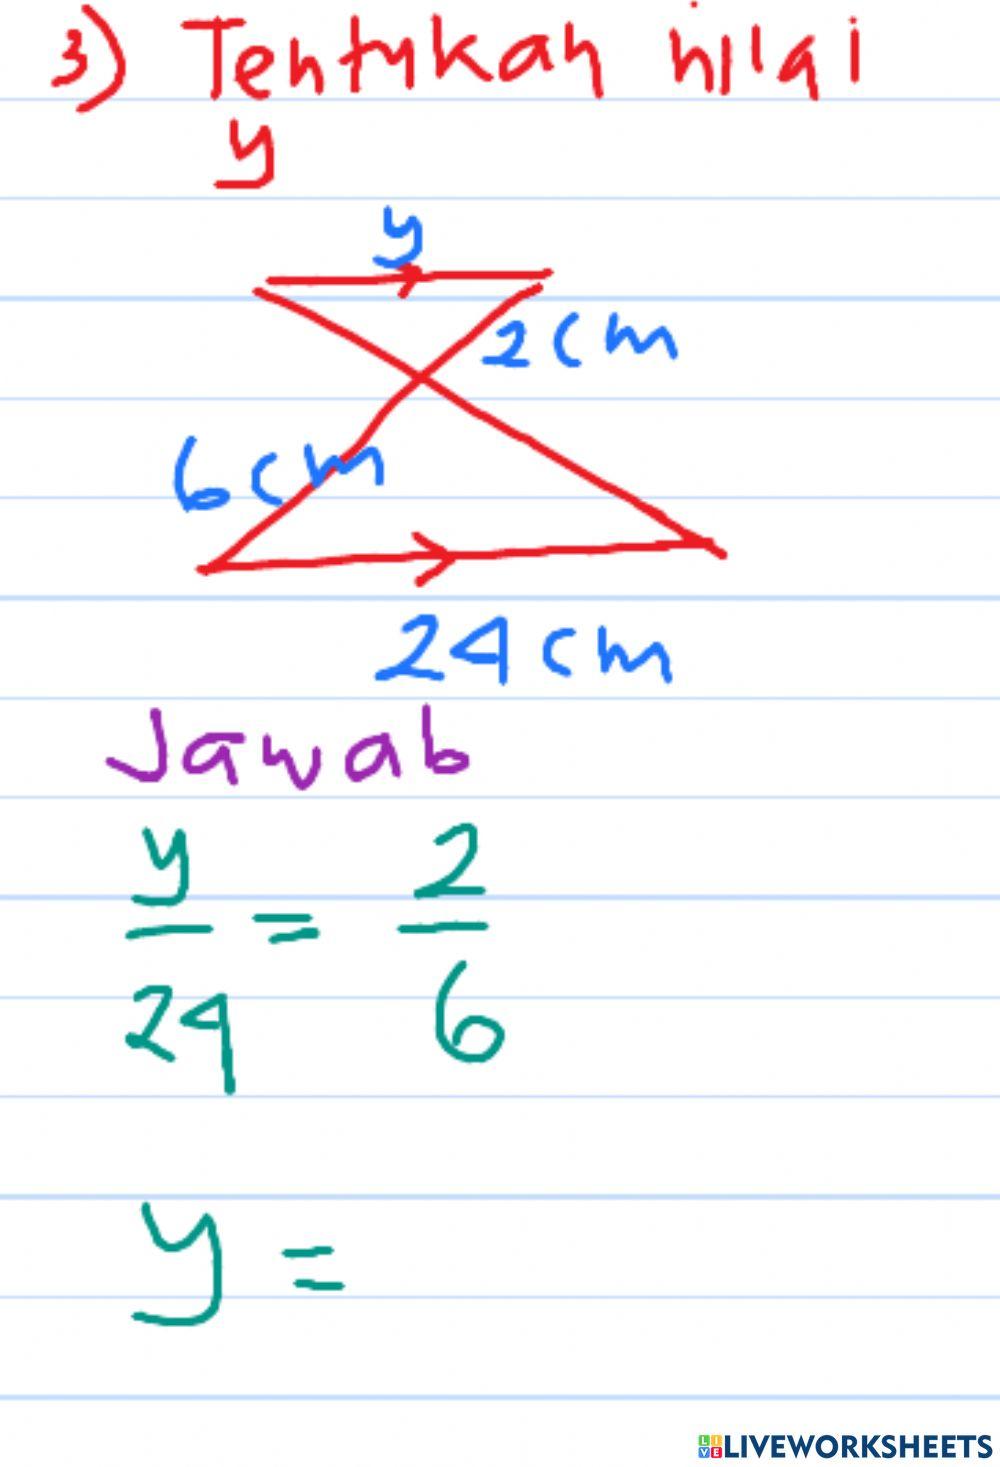 3) Tentukan nilai
y
y
2 cm
6 cm
24 cm
Jawab
y/24 = 2/6
y =
LIVEWORKSHEETS